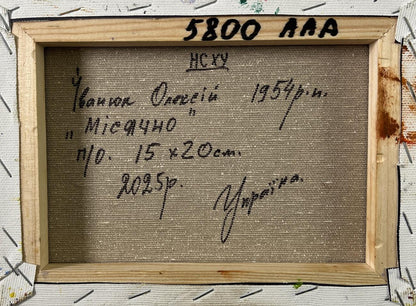 5800 AAA
НСХУ
Іванюк Олексій 1954р.н.
"Місячно"
п/о. 15 x 20см.
2025р. Україна.